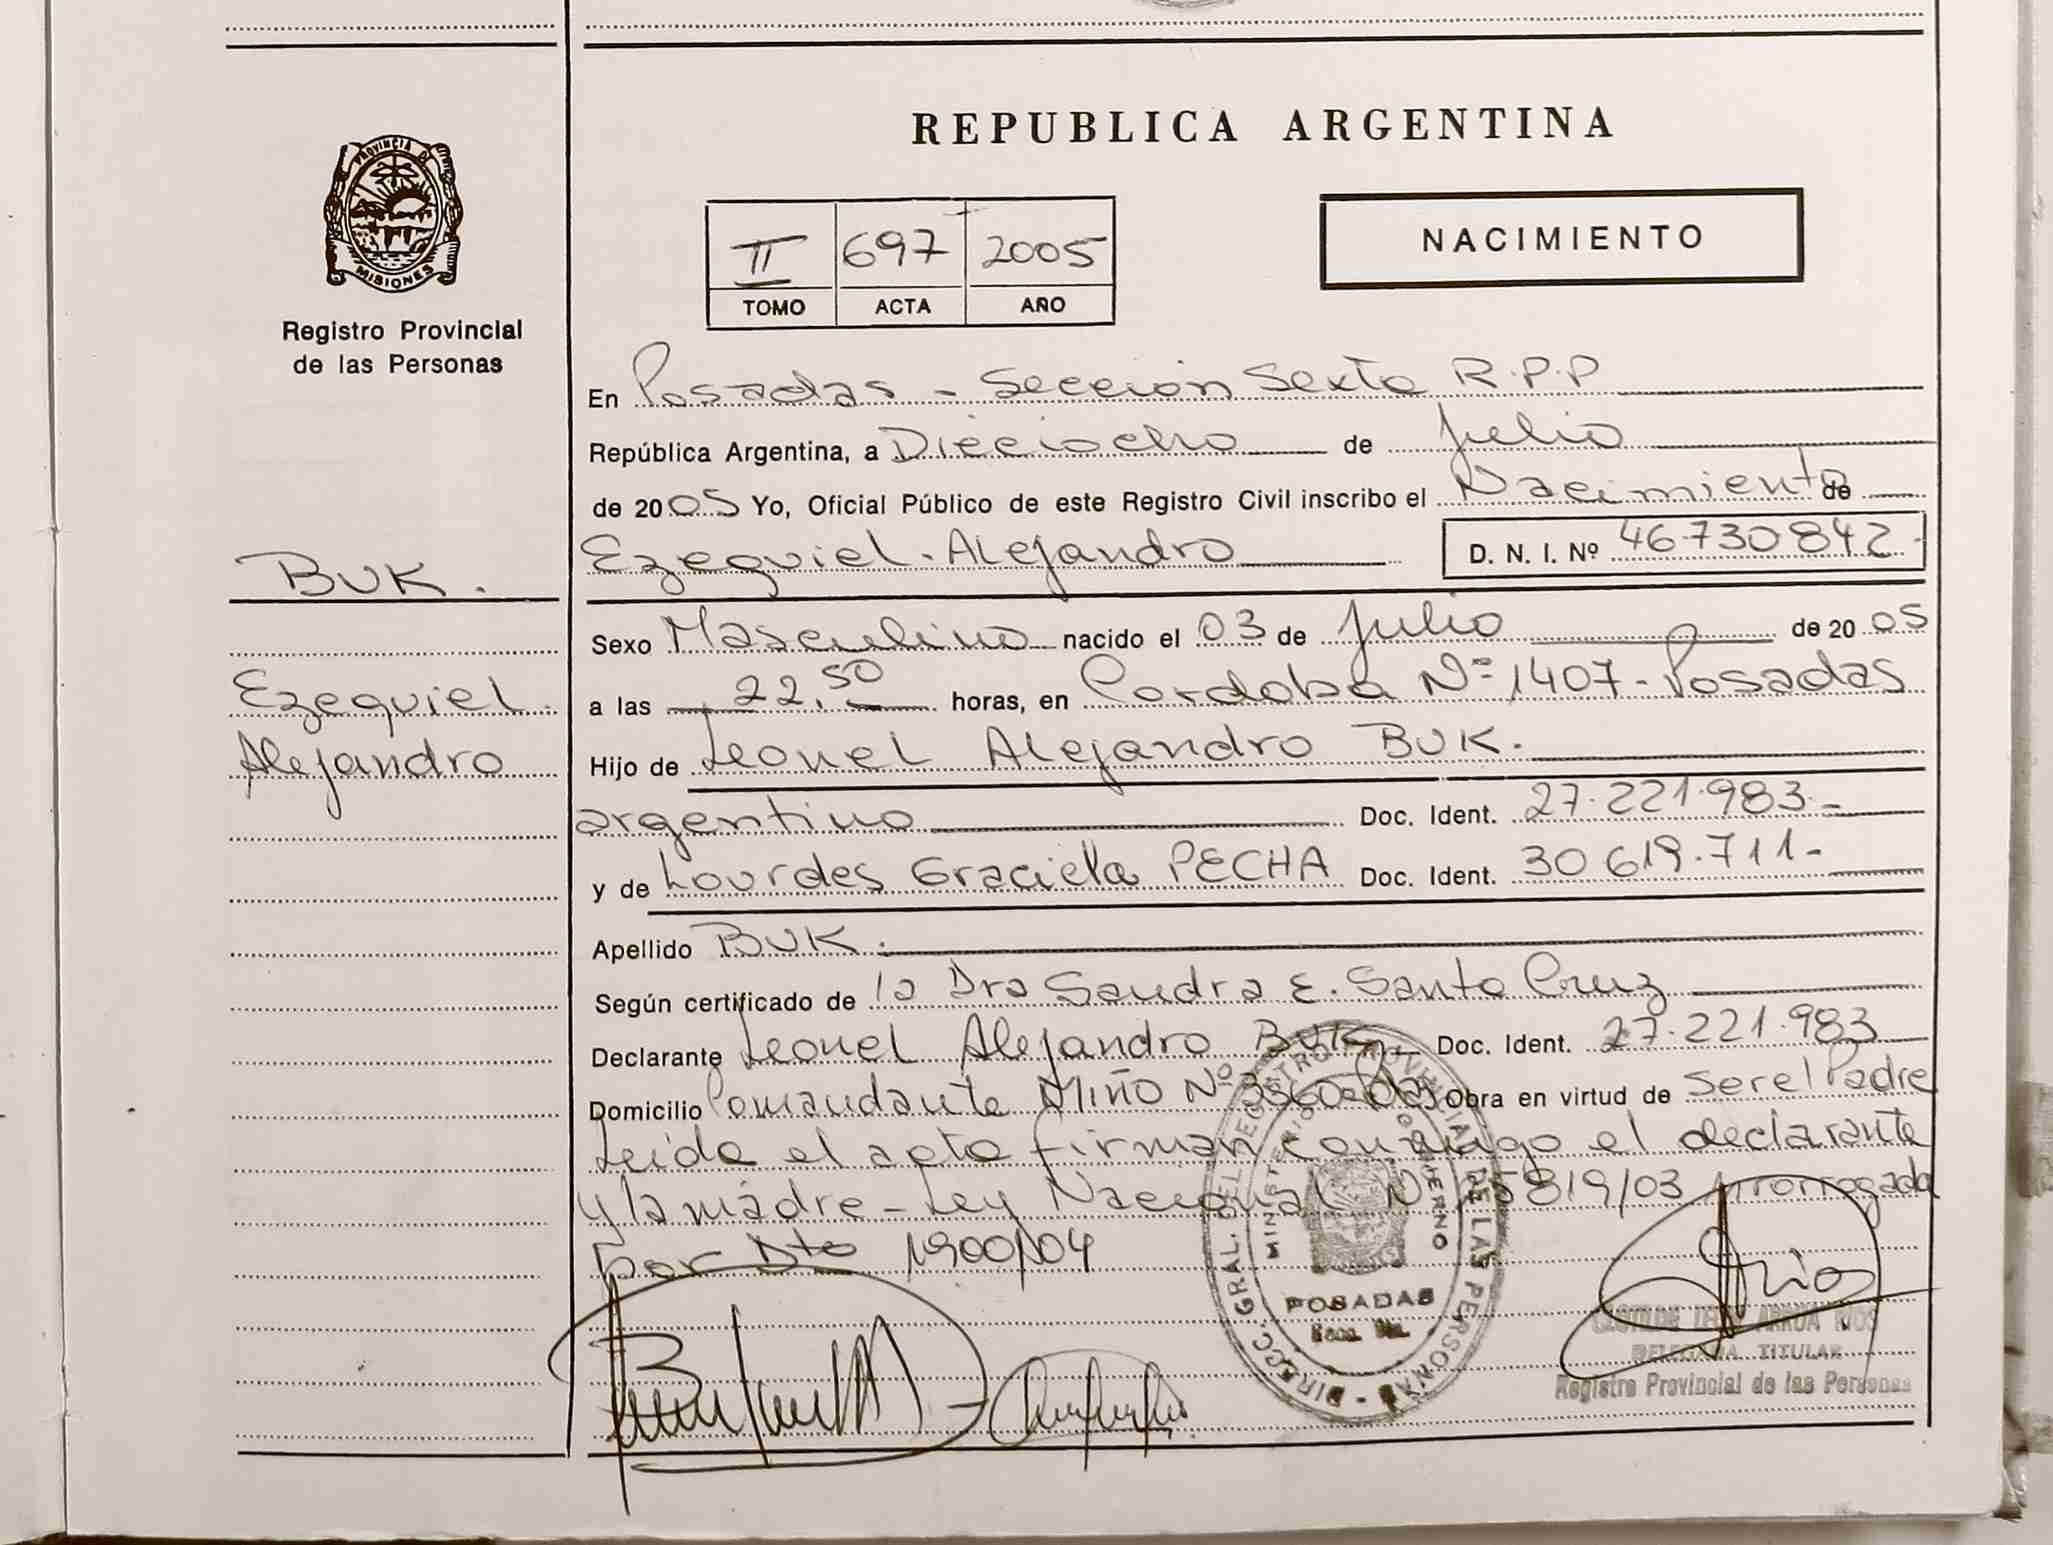 PROVINCIA D
MISIONES
Registro Provincial
de las Personas
BUK.
Ezequiel
Alejandro
REPUBLICA ARGENTINA
II 697 2005
TOMO ACTA AÑO
NACIMIENTO
En Posadas - Sección Sexta R.P.P
República Argentina, a Dieciocho de Julio
de 2005 Yo, Oficial Público de este Registro Civil inscribo el Nacimiento de
Ezequiel - Alejandro D. N. I. Nº 46730842
Sexo Masculino nacido el 03 de Julio de 2005
a las 22,50 horas, en Cordoba Nº 1407 - Posadas
Hijo de Leonel Alejandro BUK.
argentino Doc. Ident. 27.221.983.-
y de Lourdes Graciela PECHA Doc. Ident. 30619.711-
Apellido BUK.
Según certificado de la Dra Sandra E. Santa Cruz
Declarante Leonel Alejandro BUK Doc. Ident. 27.221.983
Domicilio Comandante MIÑO Nº 3360 Obra en virtud de ser el Padre
Leida el acta firman conmigo el declarante
y la madre - Ley Nacional Nº 25819/03 Prorrogada
por Dto 1900/04
DIRECC. GRAL. DEL REGISTRO PROVINCIAL DE LAS PERSONAS
MINISTERIO DE GOBIERNO
POSADAS
Rios
ARRUA RIOS
DELEGADA TITULAR
Registro Provincial de las Personas